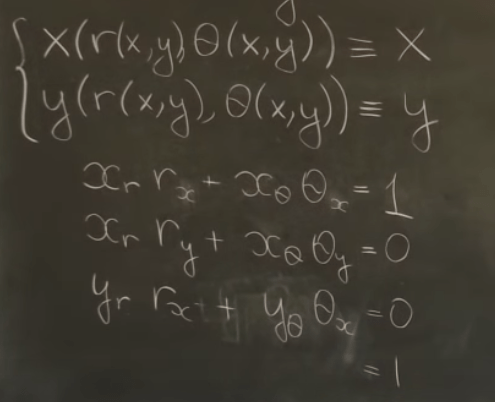 x(r(x,y), θ(x,y)) ≡ x
y(r(x,y), θ(x,y)) ≡ y
x_r r_x + x_θ θ_x = 1
x_r r_y + x_θ θ_y = 0
y_r r_x + y_θ θ_x = 0
= 1